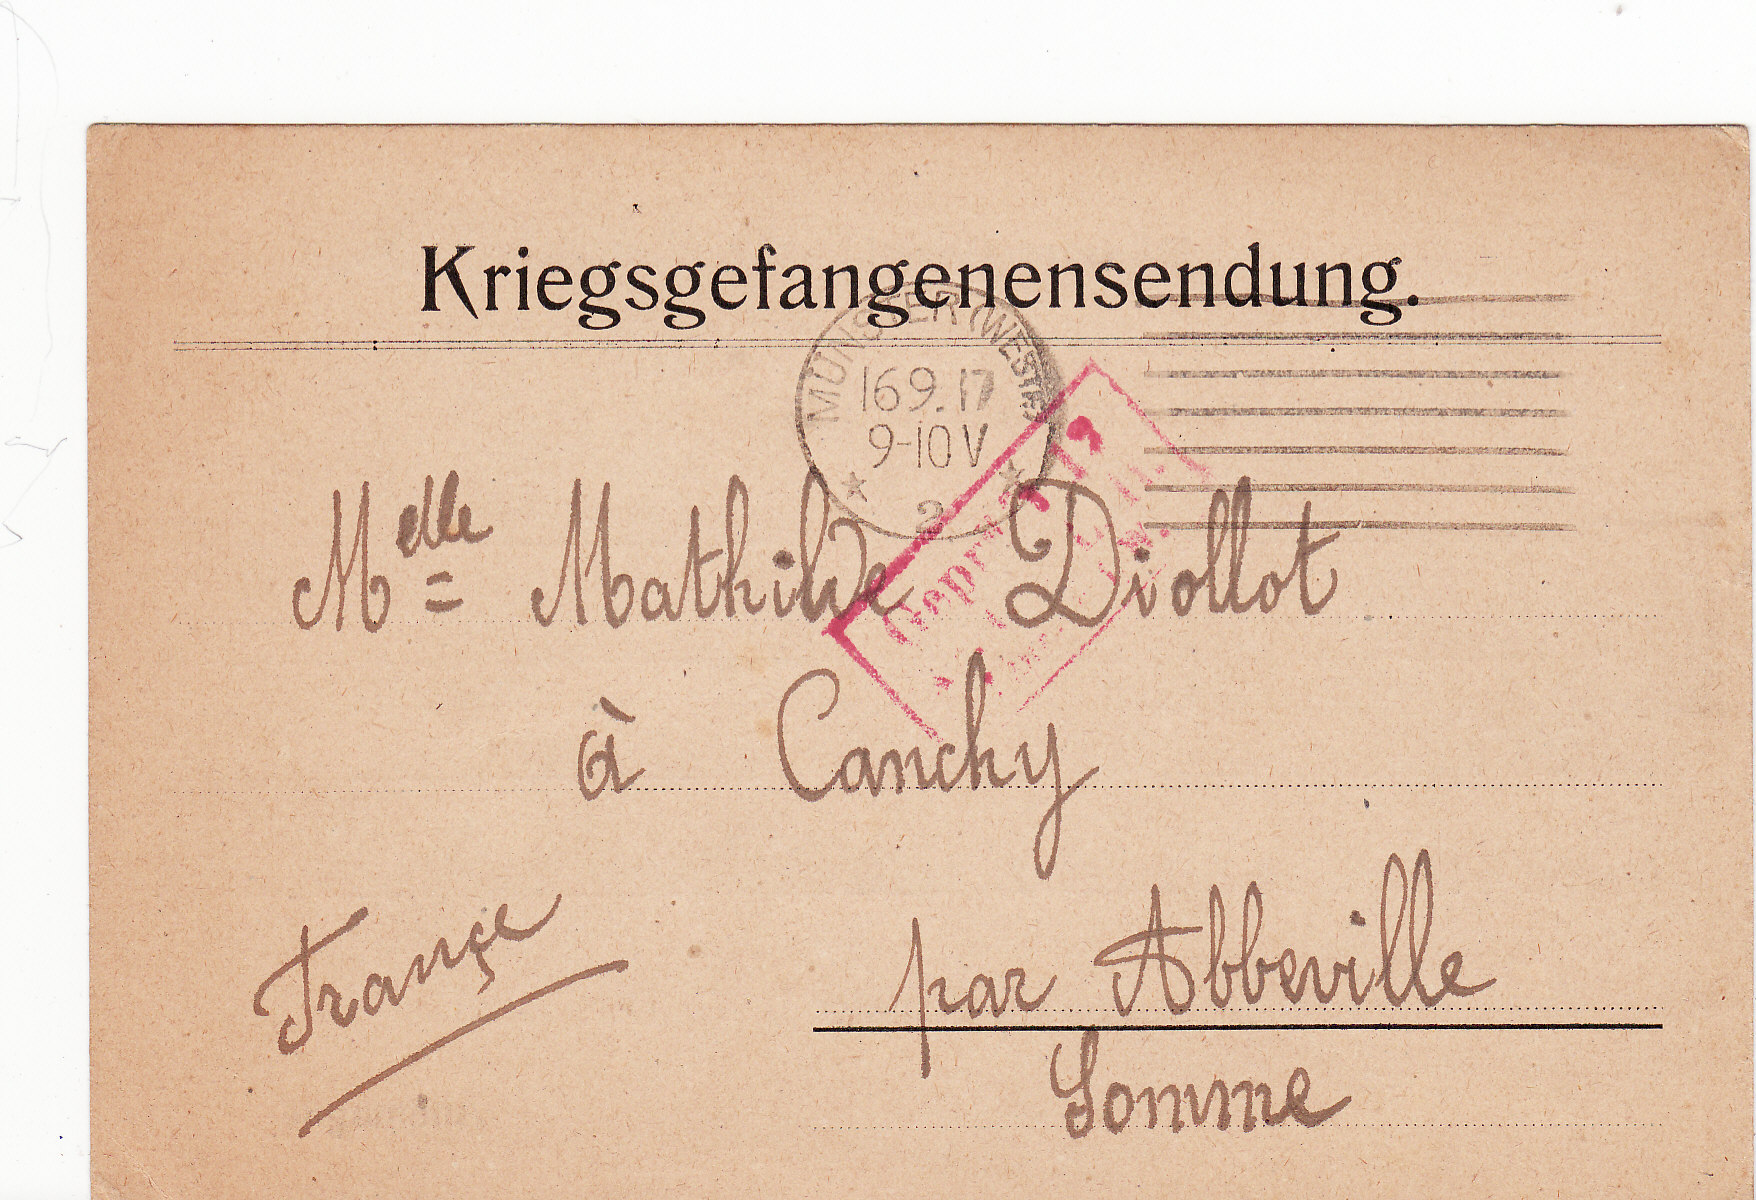 Kriegsgefangenensendung.
MÜNSTER (WESTF.)
16 9.17
9-10 V
* 2 *
Melle Mathilde Diollot
à Canchy
par Abbeville
Somme
Françe
Geprüft